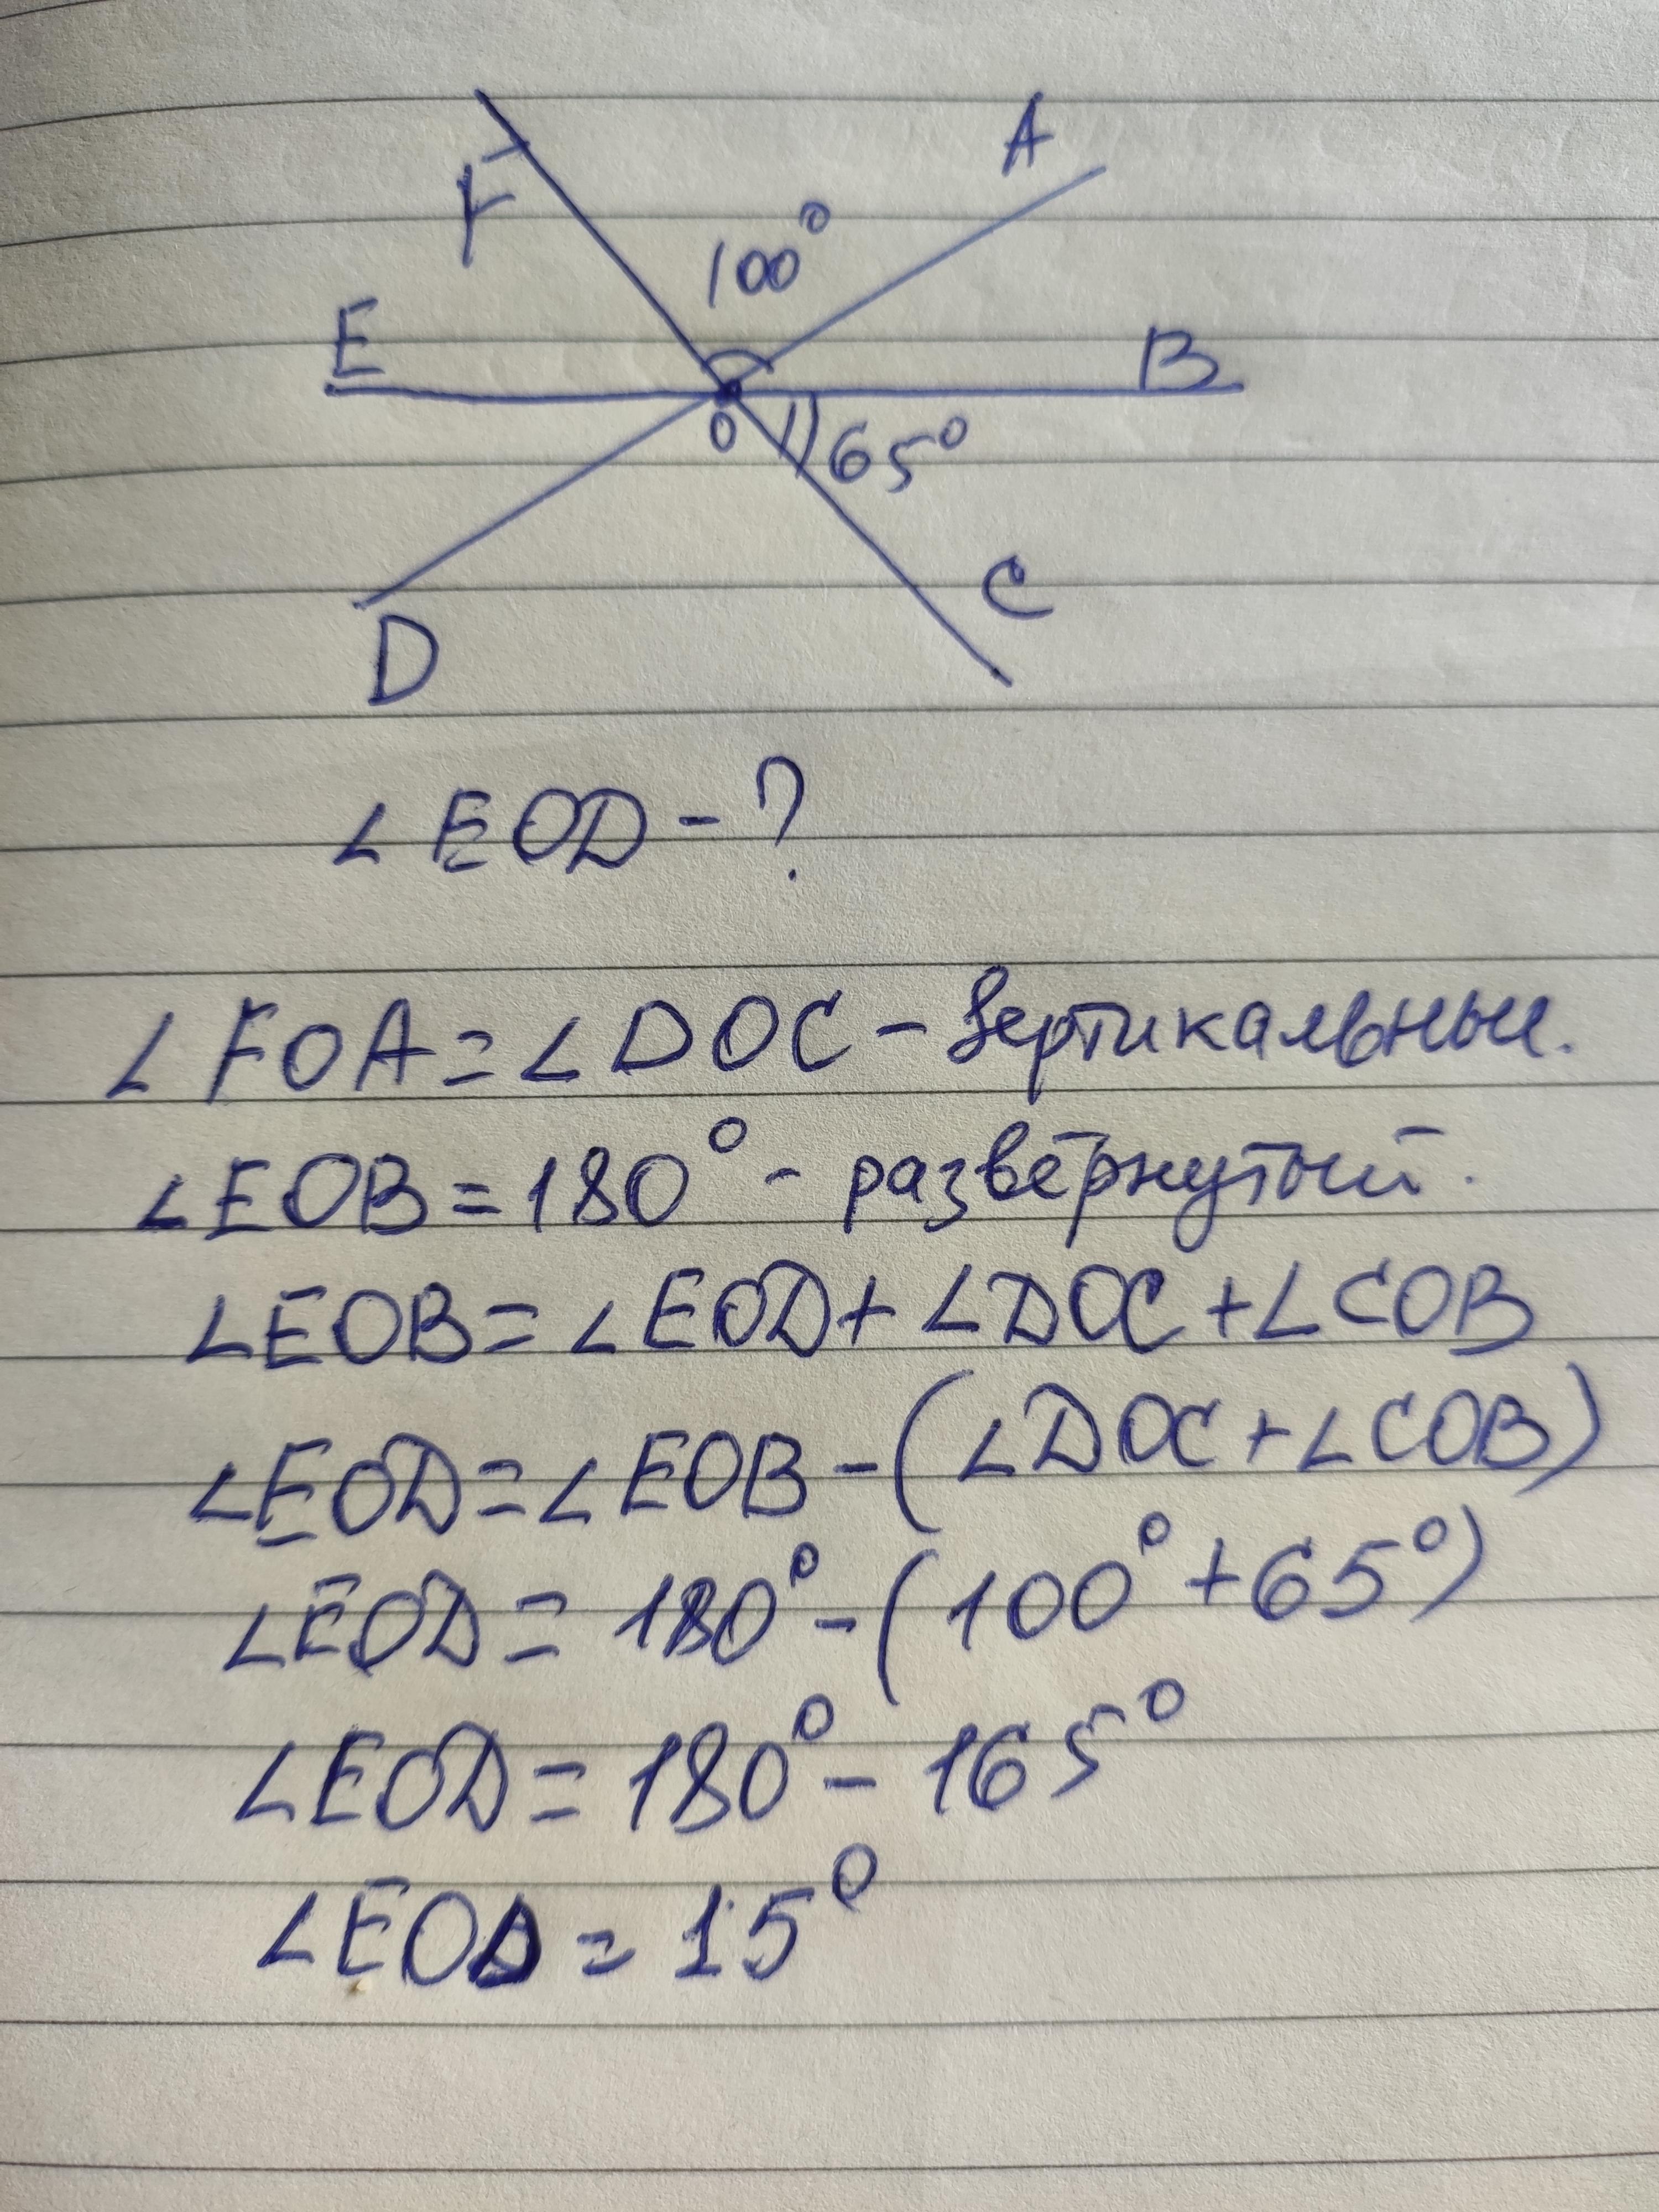 F
A
100°
E
B
O
65°
C
D
∠EOD - ?
∠FOA = ∠DOC - вертикальные.
∠EOB = 180° - развёрнутый.
∠EOB = ∠EOD + ∠DOC + ∠COB
∠EOD = ∠EOB - (∠DOC + ∠COB)
∠EOD = 180° - (100° + 65°)
∠EOD = 180° - 165°
∠EOD = 15°